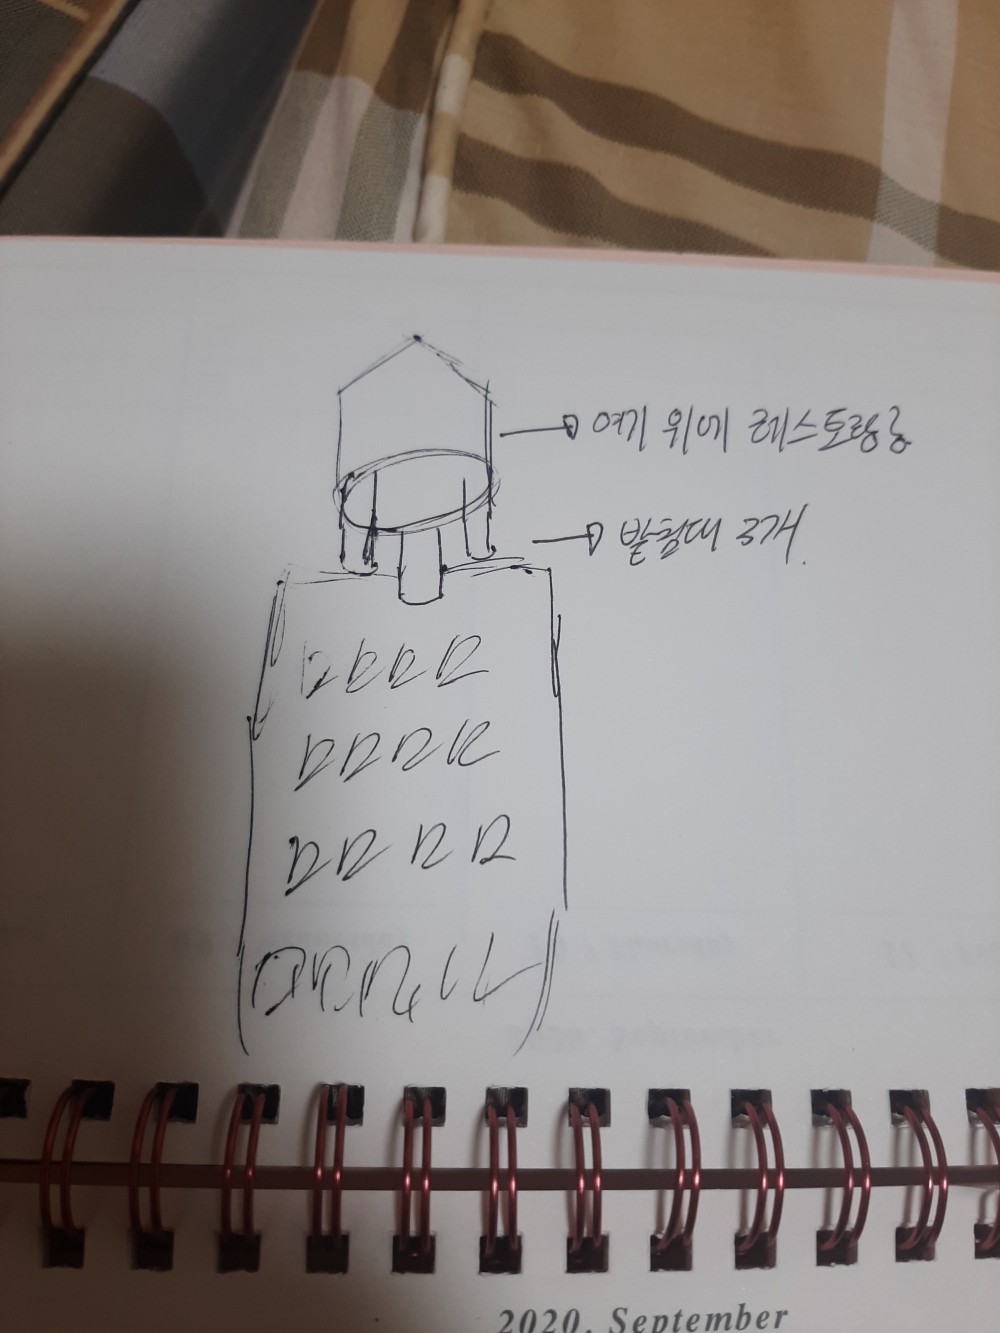 여기 위에 레스토랑층
받침대 3개.
2020. September